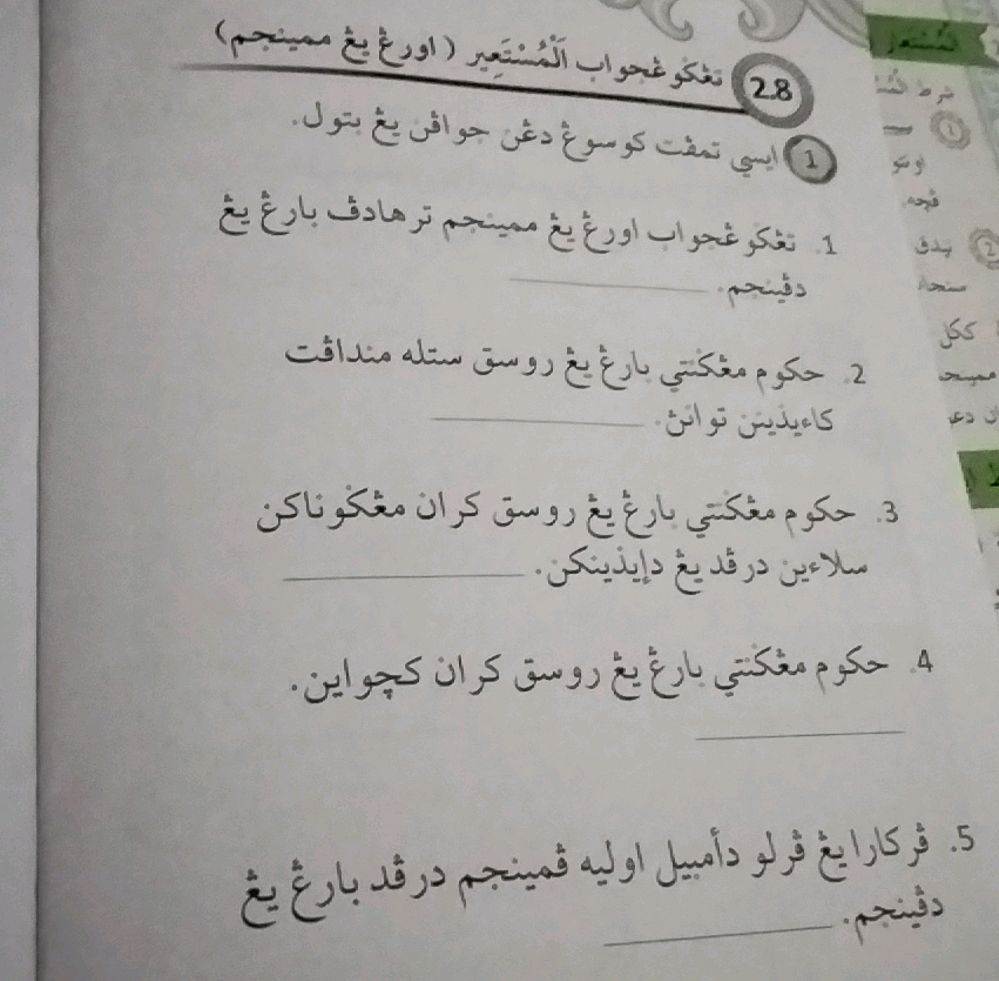 2.8 تڠݢوڠجواب اَلْمُسْتَعِير ( اورڠ يڠ ممينجم)
1 ايسي تمڤت كوسوڠ دڠن جواڤن يڠ بتول.
1. تڠݢوڠجواب اورڠ يڠ ممينجم ترهادڤ بارڠ يڠ
دڤينجم.
2. حكوم مڠݢنتي بارڠ يڠ روسق ستله منداڤت
كاءيذينن توانڽ.
3. حكوم مڠݢنتي بارڠ يڠ روسق كران مڠݢوناكن
سلاءين درڤد يڠ دإيذينكن.
4. حكوم مڠݢنتي بارڠ يڠ روسق كران كچواين.
5. ڤركارا يڠ ڤرلو دأمبيل اوليه ڤمينجم درڤد بارڠ يڠ
دڤينجم.
شرط
1
2
ككل